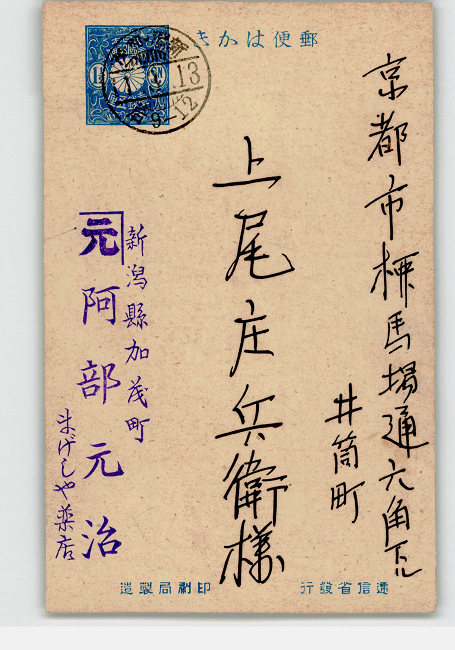 郵便はかき
京都市柳馬場通六角下ル
井筒町
上尾庄兵衛様
新潟縣加茂町
元 阿部元治
まげしや薬店
遞信省發行
印刷局製造
13
9-12